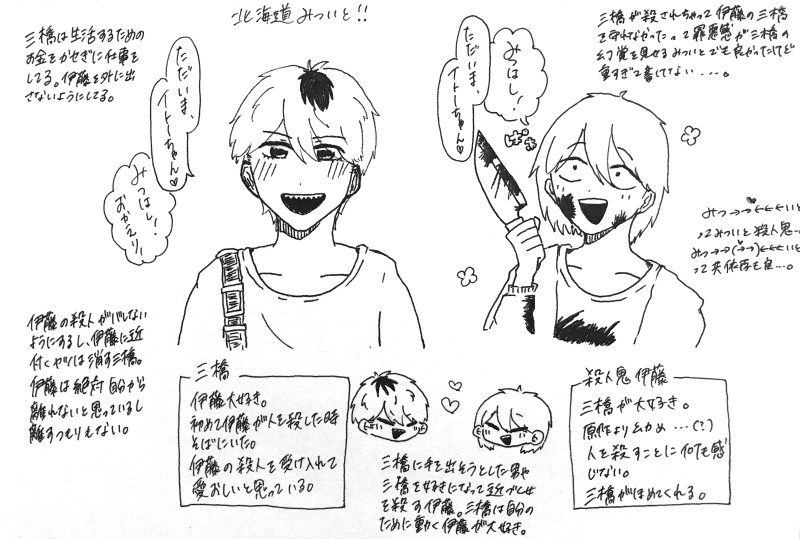 北海道 みついと!!
三橋は生活するための
お金をかせぎに仕事を
してる。伊藤を外に出
さないようにしてる。
ただいま、
イトーちゃん♡
みつはし!
おかえり!
三橋が殺されちゃって伊藤の三橋
を守れなかったって罪悪感が三橋の
幻覚を見せるみついとでも良かったけど
重すぎて書けない・・・。
みつはし!
ただいま、
イトーちゃん♡
みつ→→←←←いと
ってみついと殺人鬼
みつ→→(→→)←←←いと
って共依存も良...。
伊藤の殺人がバレない
ようにするし、伊藤に近
付くヤツは消す三橋。
伊藤は絶対自分から
離れないと思っているし
離すつもりもない。
三橋
伊藤大好き。
初めて伊藤が人を殺した時
そばにいた。
伊藤の殺人を受け入れて
愛おしいと思っている。
三橋に手を出そうとした男や
三橋を好きになって近づく女
を殺す伊藤。三橋は自分の
ために動く伊藤が大好き。
殺人鬼 伊藤
三橋が大好き。
原作より幼め…(?)
人を殺すことに何も感
じない。
三橋がほめてくれる。